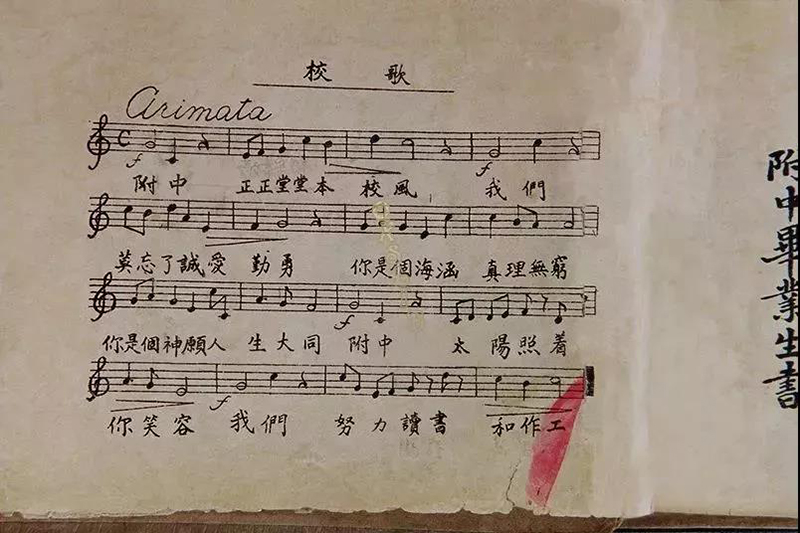 校 歌
Arimata
附中 正正堂堂本 校風 我們
莫忘了誠愛 勤勇 你是個海涵 真理無窮
你是個神願人 生大同 附中 太陽照着
你笑容 我們 努力讀書 和作工
附中畢業生書